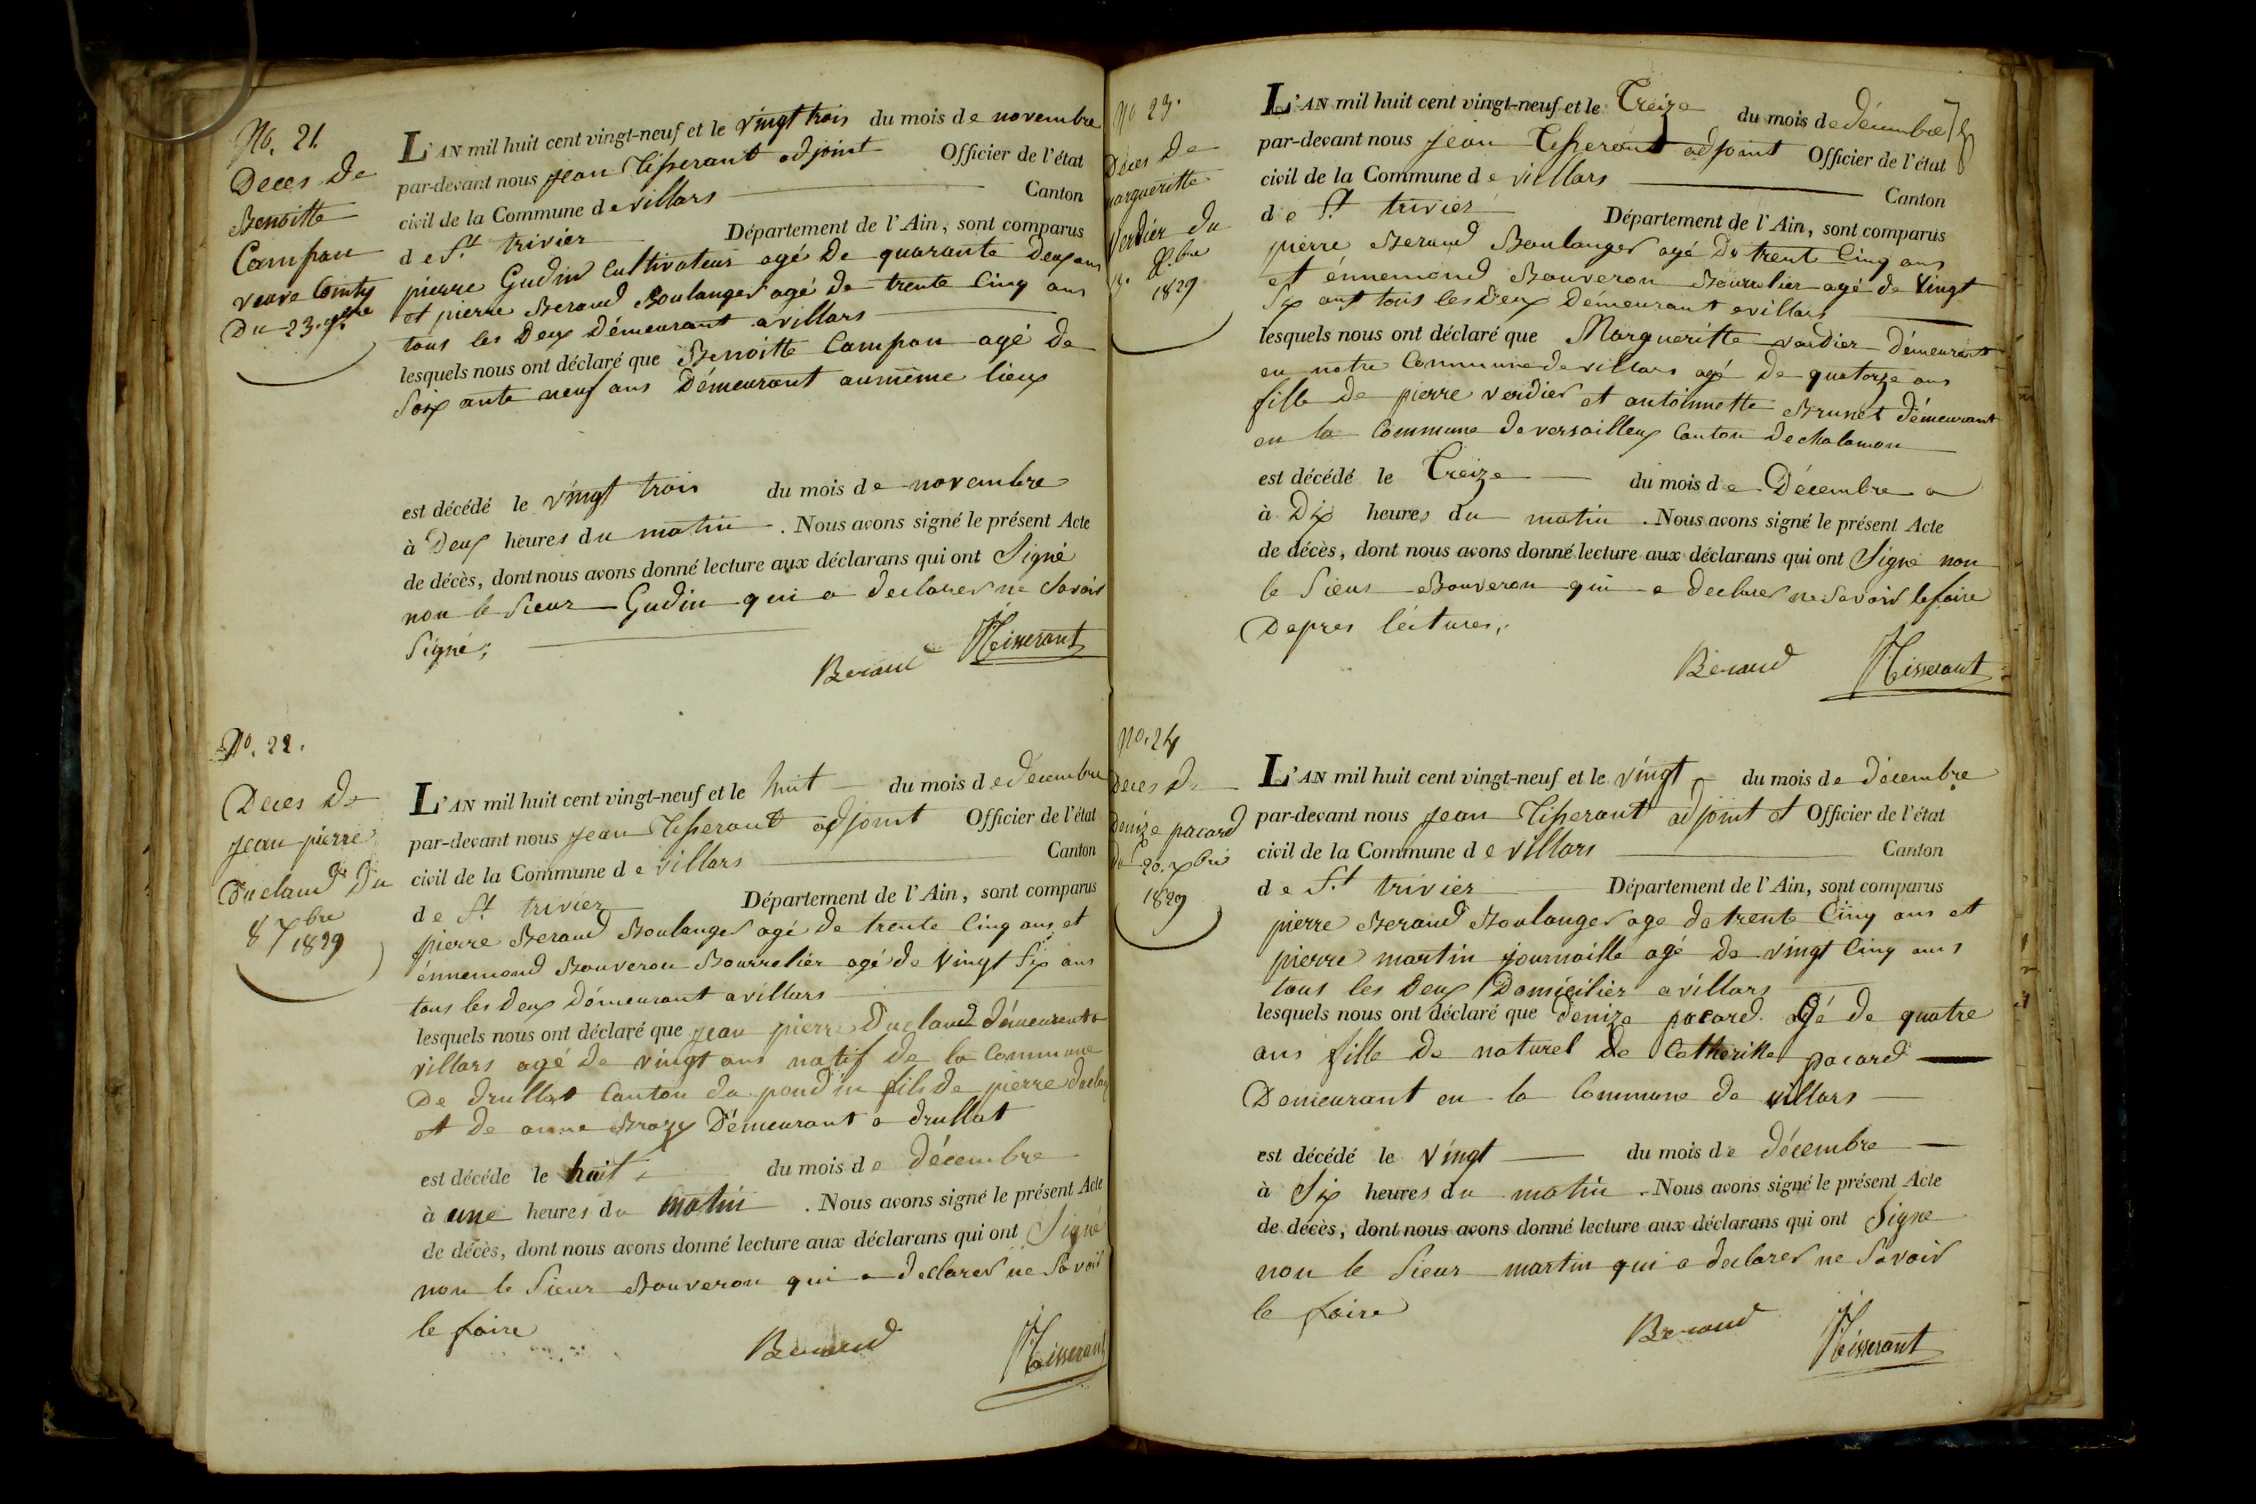 No. 21.
Deces de
Benoitte
Campan
veuve Comty
Du 23. 9bre
L'AN mil huit cent vingt-neuf et le vingt trois du mois de novembre
par-devant nous jean Tisserant adjoint Officier de l'état
civil de la Commune de villars Canton
de St. trivier Département de l'Ain, sont comparus
pierre Gudin Cultivateur agé De quarante Deux ans
et pierre Beraud Boulanger agé de trente Cinq ans
tous les Deux Démeurant a villars
lesquels nous ont déclaré que Benoitte Campan agé De
Soixante neuf ans Démeurant au même lieux
est décédé le vingt trois du mois de novembre
à Deux heures du matin. Nous avons signé le présent Acte
de décès, dont nous avons donné lecture aux déclarans qui ont Signé
non le Sieur Gudin qui a declarer ne Savoir
Signé;
Beraud JTisserant
No. 22.
Deces De
jean pierre
Duclaud Du
8 Xbre
1829
L'AN mil huit cent vingt-neuf et le huit du mois de décembre
par-devant nous jean Tisserant adjoint Officier de l'état
civil de la Commune de villars Canton
de St. trivier Département de l'Ain, sont comparus
pierre Beraud Boulanger agé de trente Cinq ans et
énnemond Bouveron Bourrelier agé de vingt Six ans
tous les Deux Démeurant a villars
lesquels nous ont déclaré que jean pierre Duclaud démeurent a
villars agé de vingt ans natif de la Commune
De drullat Canton du pondin fils de pierre duclau
et de anne Brazy Démeurant a drullat
est décéde le huit du mois de décembre
à une heures du matin. Nous avons signé le présent Acte
de décès, dont nous avons donné lecture aux déclarans qui ont Signé
non le Sieur Bouveron qui a declarer ne Savoir
le faire
Beraud JTisserant
No 23.
Deces De
margueritte
Verdier Du
13. Xbre
1829
L'AN mil huit cent vingt-neuf et le Treize du mois de décembre
par-devant nous jean Tisserant adjoint Officier de l'état
civil de la Commune de villars Canton
de St. trivier Département de l'Ain, sont comparus
pierre Beraud Boulanger agé De trente Cinq ans
et énnemond Bouveron Bourrelier agé de Vingt
Six ans tous les Deux Démeurant a villars
lesquels nous ont déclaré que Margueritte verdier démeurant
en notre Commune de villars agé de quatorze ans
fille de pierre verdier et antoinnette Brunet démeurant
en la Commune de versailleux Canton de chalamon
est décédé le Treize du mois de Décembre a
à Dix heures du matin. Nous avons signé le présent Acte
de décès, dont nous avons donné lecture aux déclarans qui ont Signé non
le Sieur Bouveron qui a declarer ne Savoir le faire
Depres léctures,
Beraud JTisserant
No. 24
Deces De
Denize pacard
du 20. Xbre
1829
L'AN mil huit cent vingt-neuf et le vingt du mois de décembre
par-devant nous jean Tisserant adjoint et Officier de l'état
civil de la Commune de villars Canton
de St. trivier Département de l'Ain, sont comparus
pierre Beraud Boulanger age de trente Cinq ans et
pierre martin journaille agé de vingt Cinq ans
tous les Deux Domicilier a villars
lesquels nous ont déclaré que denize pacard agé de quatre
ans fille de naturel de Catherine pacard
Demeurant en la Commune de villars
est décédé le vingt du mois de décembre
à Six heures du matin. Nous avons signé le présent Acte
de décès, dont nous avons donné lecture aux déclarans qui ont Signe
non le Sieur martin qui a declarer ne Savoir
le faire
Beraud JTisserant